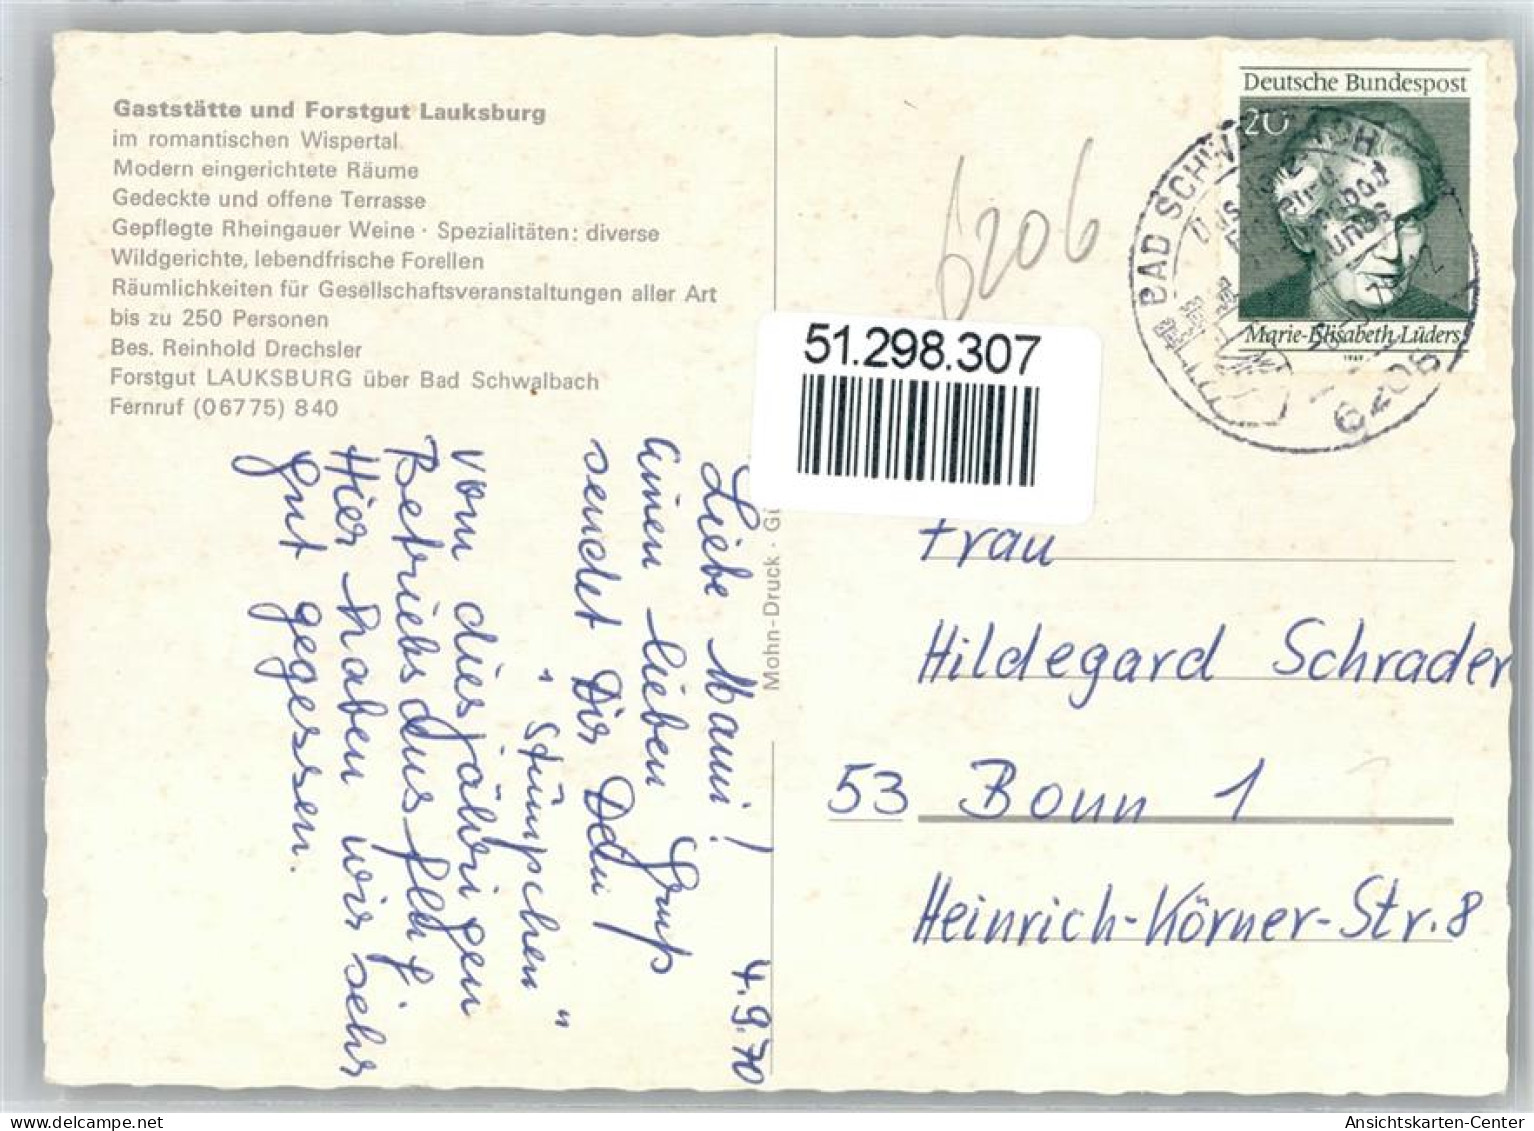 Gaststätte und Forstgut Lauksburg
im romantischen Wispertal
Modern eingerichtete Räume
Gedeckte und offene Terrasse
Gepflegte Rheingauer Weine · Spezialitäten: diverse
Wildgerichte, lebendfrische Forellen
Räumlichkeiten für Gesellschaftsveranstaltungen aller Art
bis zu 250 Personen
Bes. Reinhold Drechsler
Forstgut LAUKSBURG über Bad Schwalbach
Fernruf (06775) 840
4.9.70
Liebe Mami!
Einen lieben Gruß
sendet Dir Dein
"Stümpchen"
vom diesjährigen
Betriebsausflug.
Hier haben wir sehr
gut gegessen.
Mohn-Druck · Gü
6206
51.298.307
Deutsche Bundespost
20
Marie-Elisabeth Lüders
1969
BAD SCHWALBACH
6206
Frau
Hildegard Schrader
53 Bonn 1
Heinrich-Körner-Str. 8
Ansichtskarten-Center